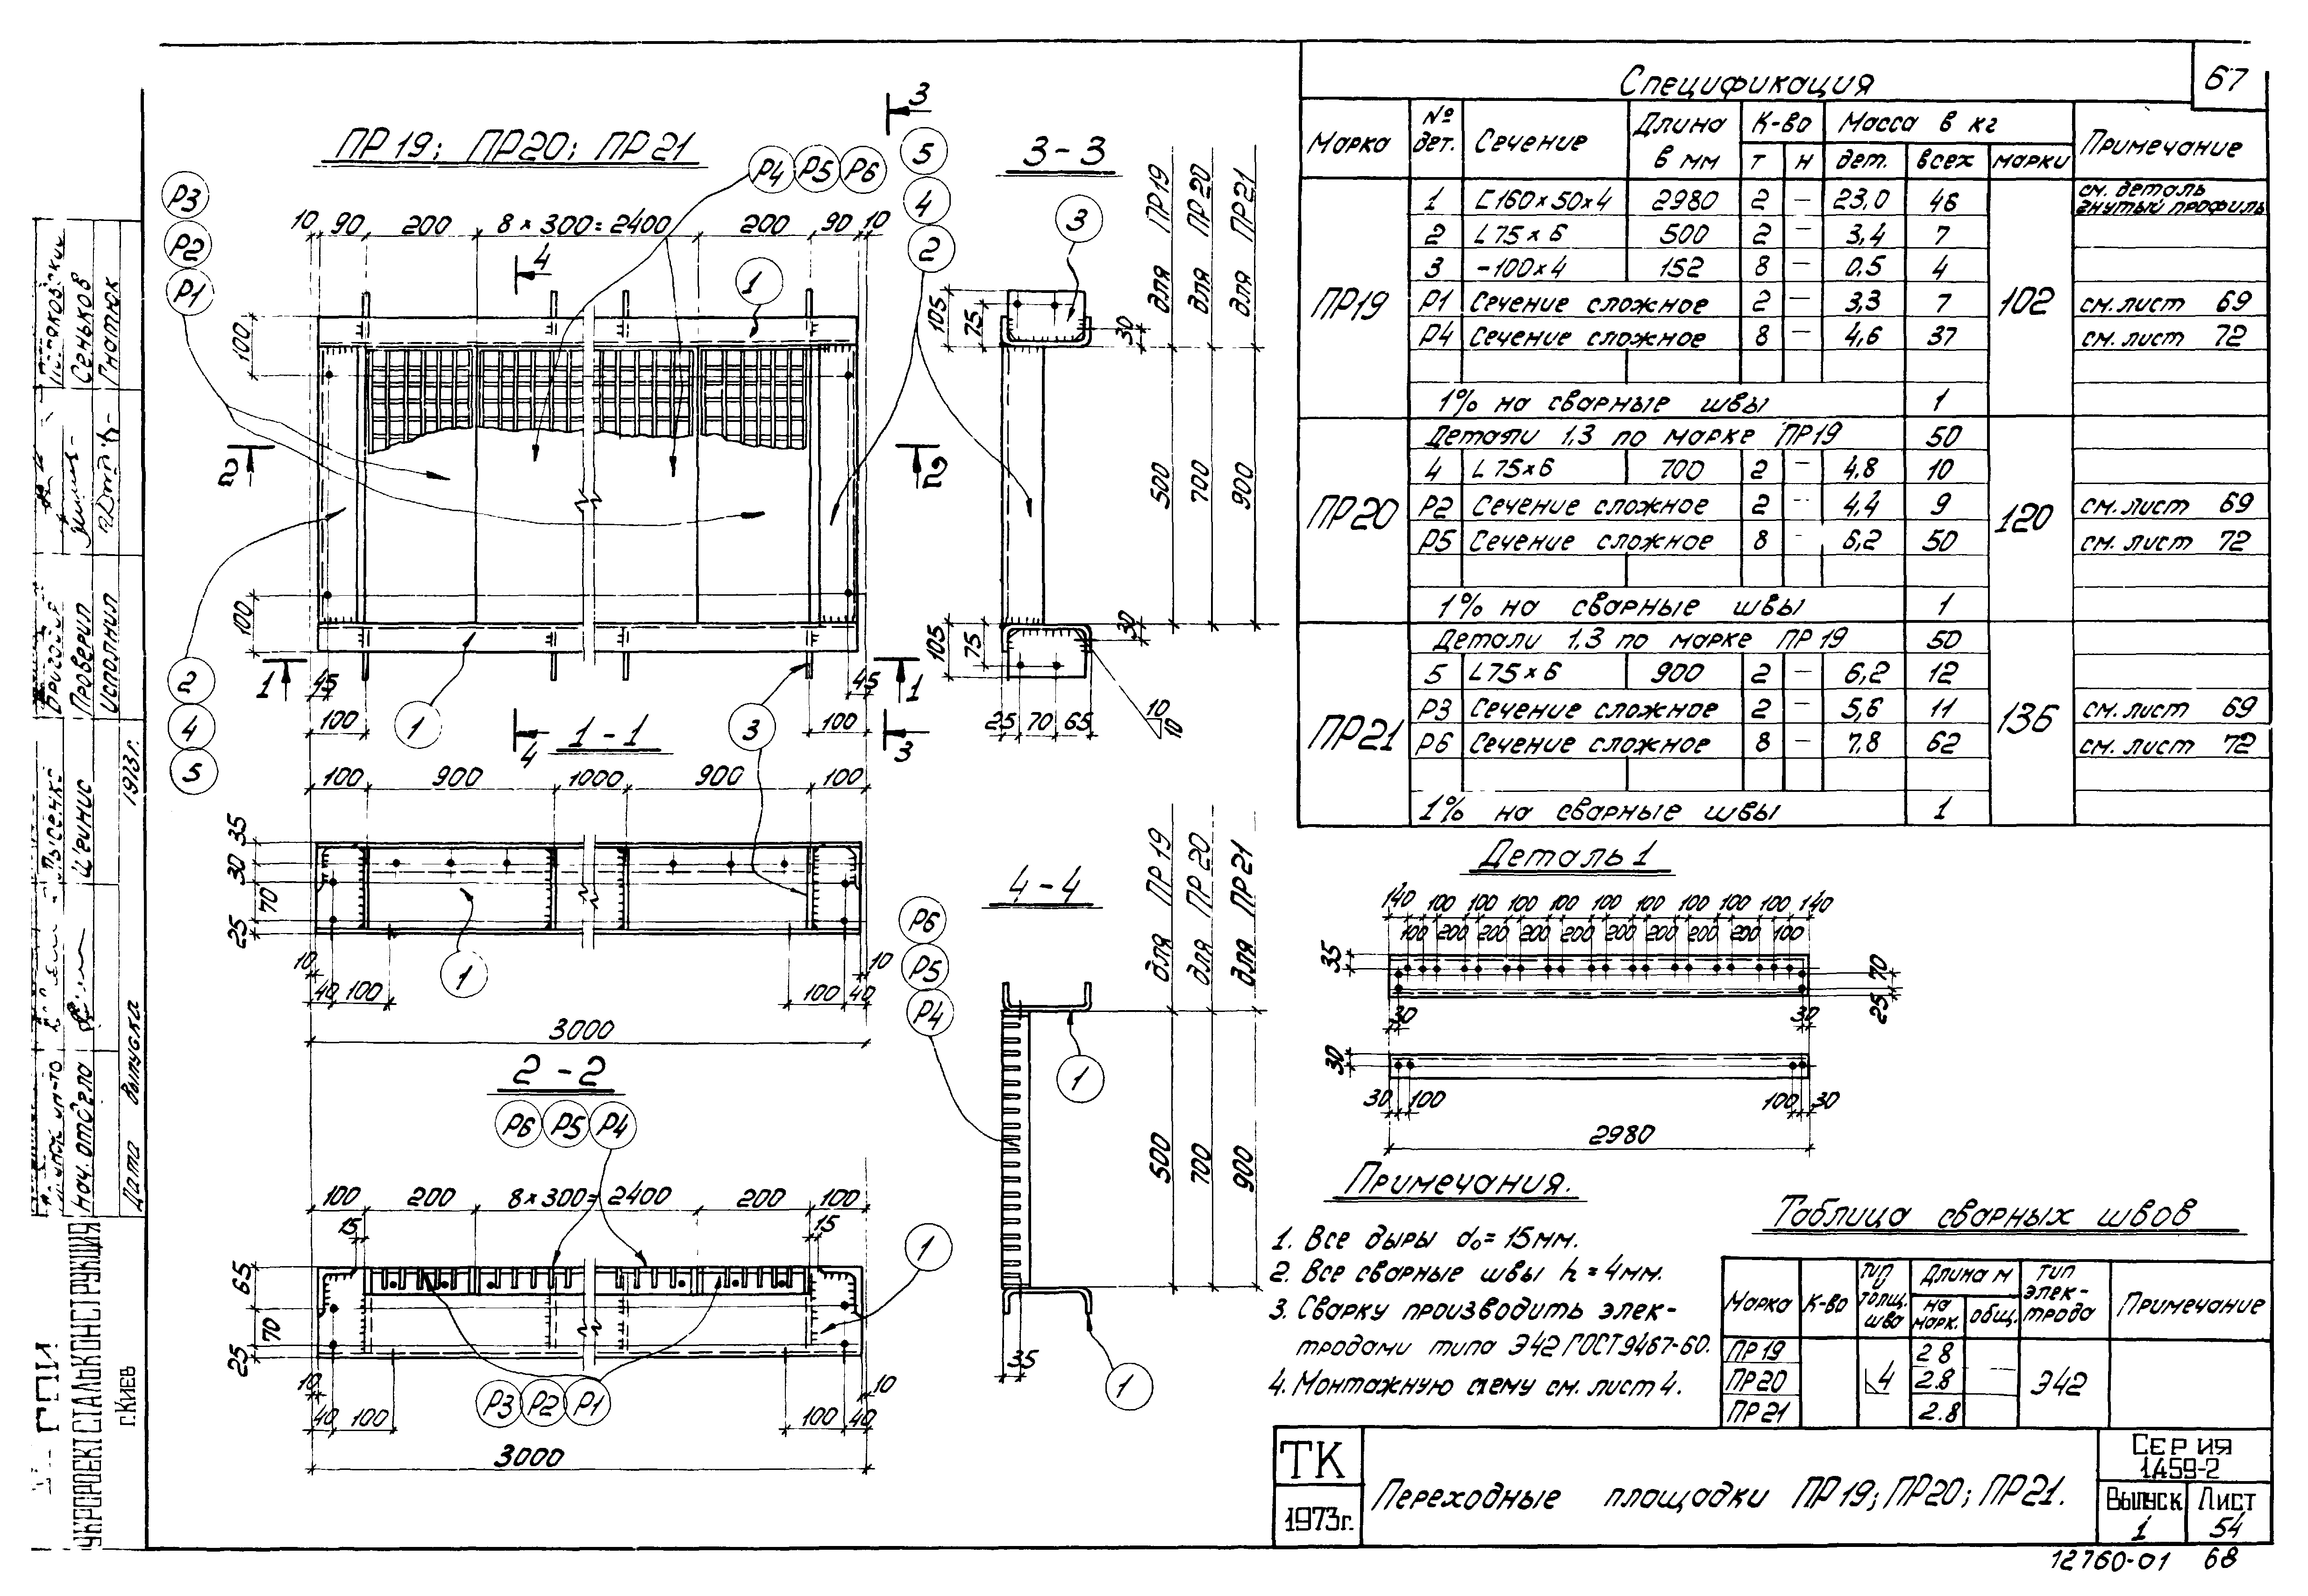 67
Спецификация
Марка № дет. Сечение Длина в мм К-во Масса в кг Примечание
т н дет. всех марки
ПР19 1 [160×50×4 2980 2 — 23,0 46 102 см. деталь гнутый профиль
2 L75×6 500 2 — 3,4 7
3 -100×4 152 8 — 0.5 4
Р1 Сечение сложное 2 — 3,3 7 см. лист 69
Р4 Сечение сложное 8 — 4,6 37 см. лист 72
1% на сварные швы 1
ПР20 Детали 1,3 по марке ПР19 50 120
4 L75×6 700 2 — 4,8 10
Р2 Сечение сложное 2 — 4,4 9 см. лист 69
Р5 Сечение сложное 8 - 6,2 50 см. лист 72
1% на сварные швы 1
ПР21 Детали 1,3 по марке ПР19 50 136
5 L75×6 900 2 — 6,2 12
Р3 Сечение сложное 2 — 5,6 11 см. лист 69
Р6 Сечение сложное 8 — 7,8 62 см. лист 72
1% на сварные швы 1
ПР19; ПР20; ПР21
Р3
Р2
Р1
Р4 Р5 Р6
3
5
4
2
10 90 200 8×300=2400 200 90 10
4
1
100
2 2
100
2
4
5
1 45 45 1
100 1 4 3 100 3
3-3
для ПР19
для ПР20
для ПР21
3
105 75 30
500 700 900
105 75 30
25 70 65
10
10
1-1
100 900 1000 900 100
35
30
70
25
1
10 10
40 100 100 40
3000
2-2
Р6 Р5 Р4
100 200 8×300=2400 200 100
15 15
1
65
70
25
10 10
Р3 Р2 Р1
40 100 100 40
3000
4-4
для ПР19
для ПР20
для ПР21
Р6
Р5
Р4
1
500 700 900
35
1
Деталь 1
140 100 100 100 100 100 100 100 100 100 140
100 200 200 200 200 200 200 200 200 100
35
70
25
30 30
30
30 100 100 30
2980
Примечания.
1. Все дыры d₀=15мм.
2. Все сварные швы h=4мм.
3. Сварку производить элек-
тродами типа Э42 ГОСТ 9467-60.
4. Монтажную схему см. лист 4.
Таблица сварных швов
Марка К-во Тип и толщ. шва Длина м Тип элек-трода Примечание
на марк. общ.
ПР19 2.8
ПР20 4 2.8 — Э42
ПР21 2.8
ТК
1973г.
Переходные площадки ПР19; ПР20; ПР21.
Серия
1.459-2
Выпуск
1
Лист
54
12760-01 68
УКРПРОЕКТСТАЛЬКОНСТРУКЦИЯ
г. Киев
Нач. отдела
Дата выпуска 1973г.
Проверил Сеньков
Исполнил Гнатюк